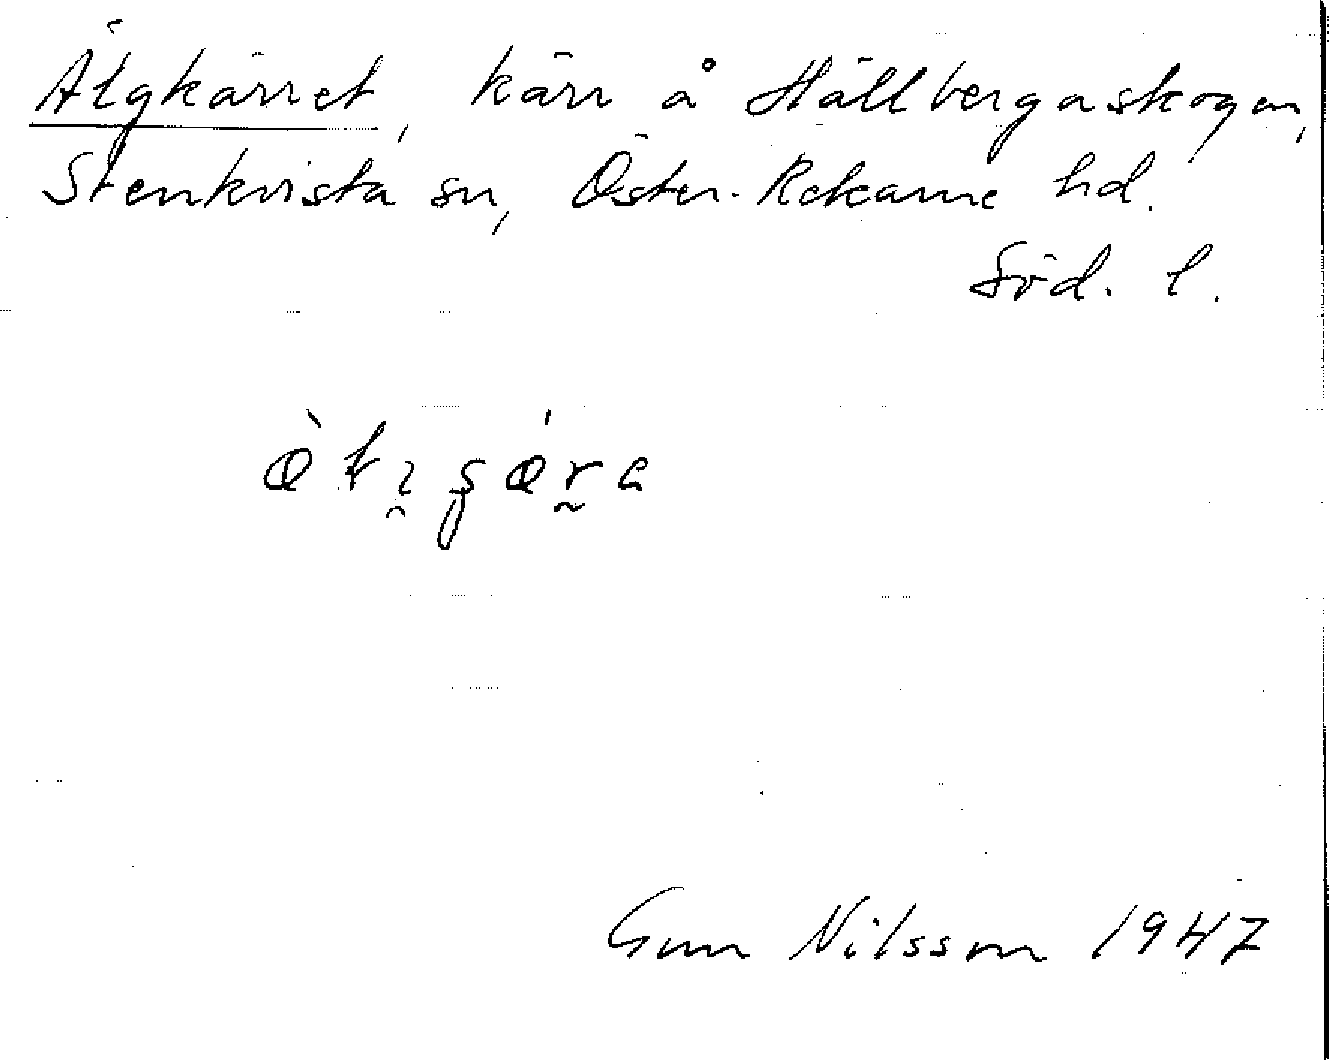 Älgkärret, kärr å Hällbergaskogen,
Stenkvista sn, Öster-Rekarne hd.
Söd. l.
Gun Nilsson 1947